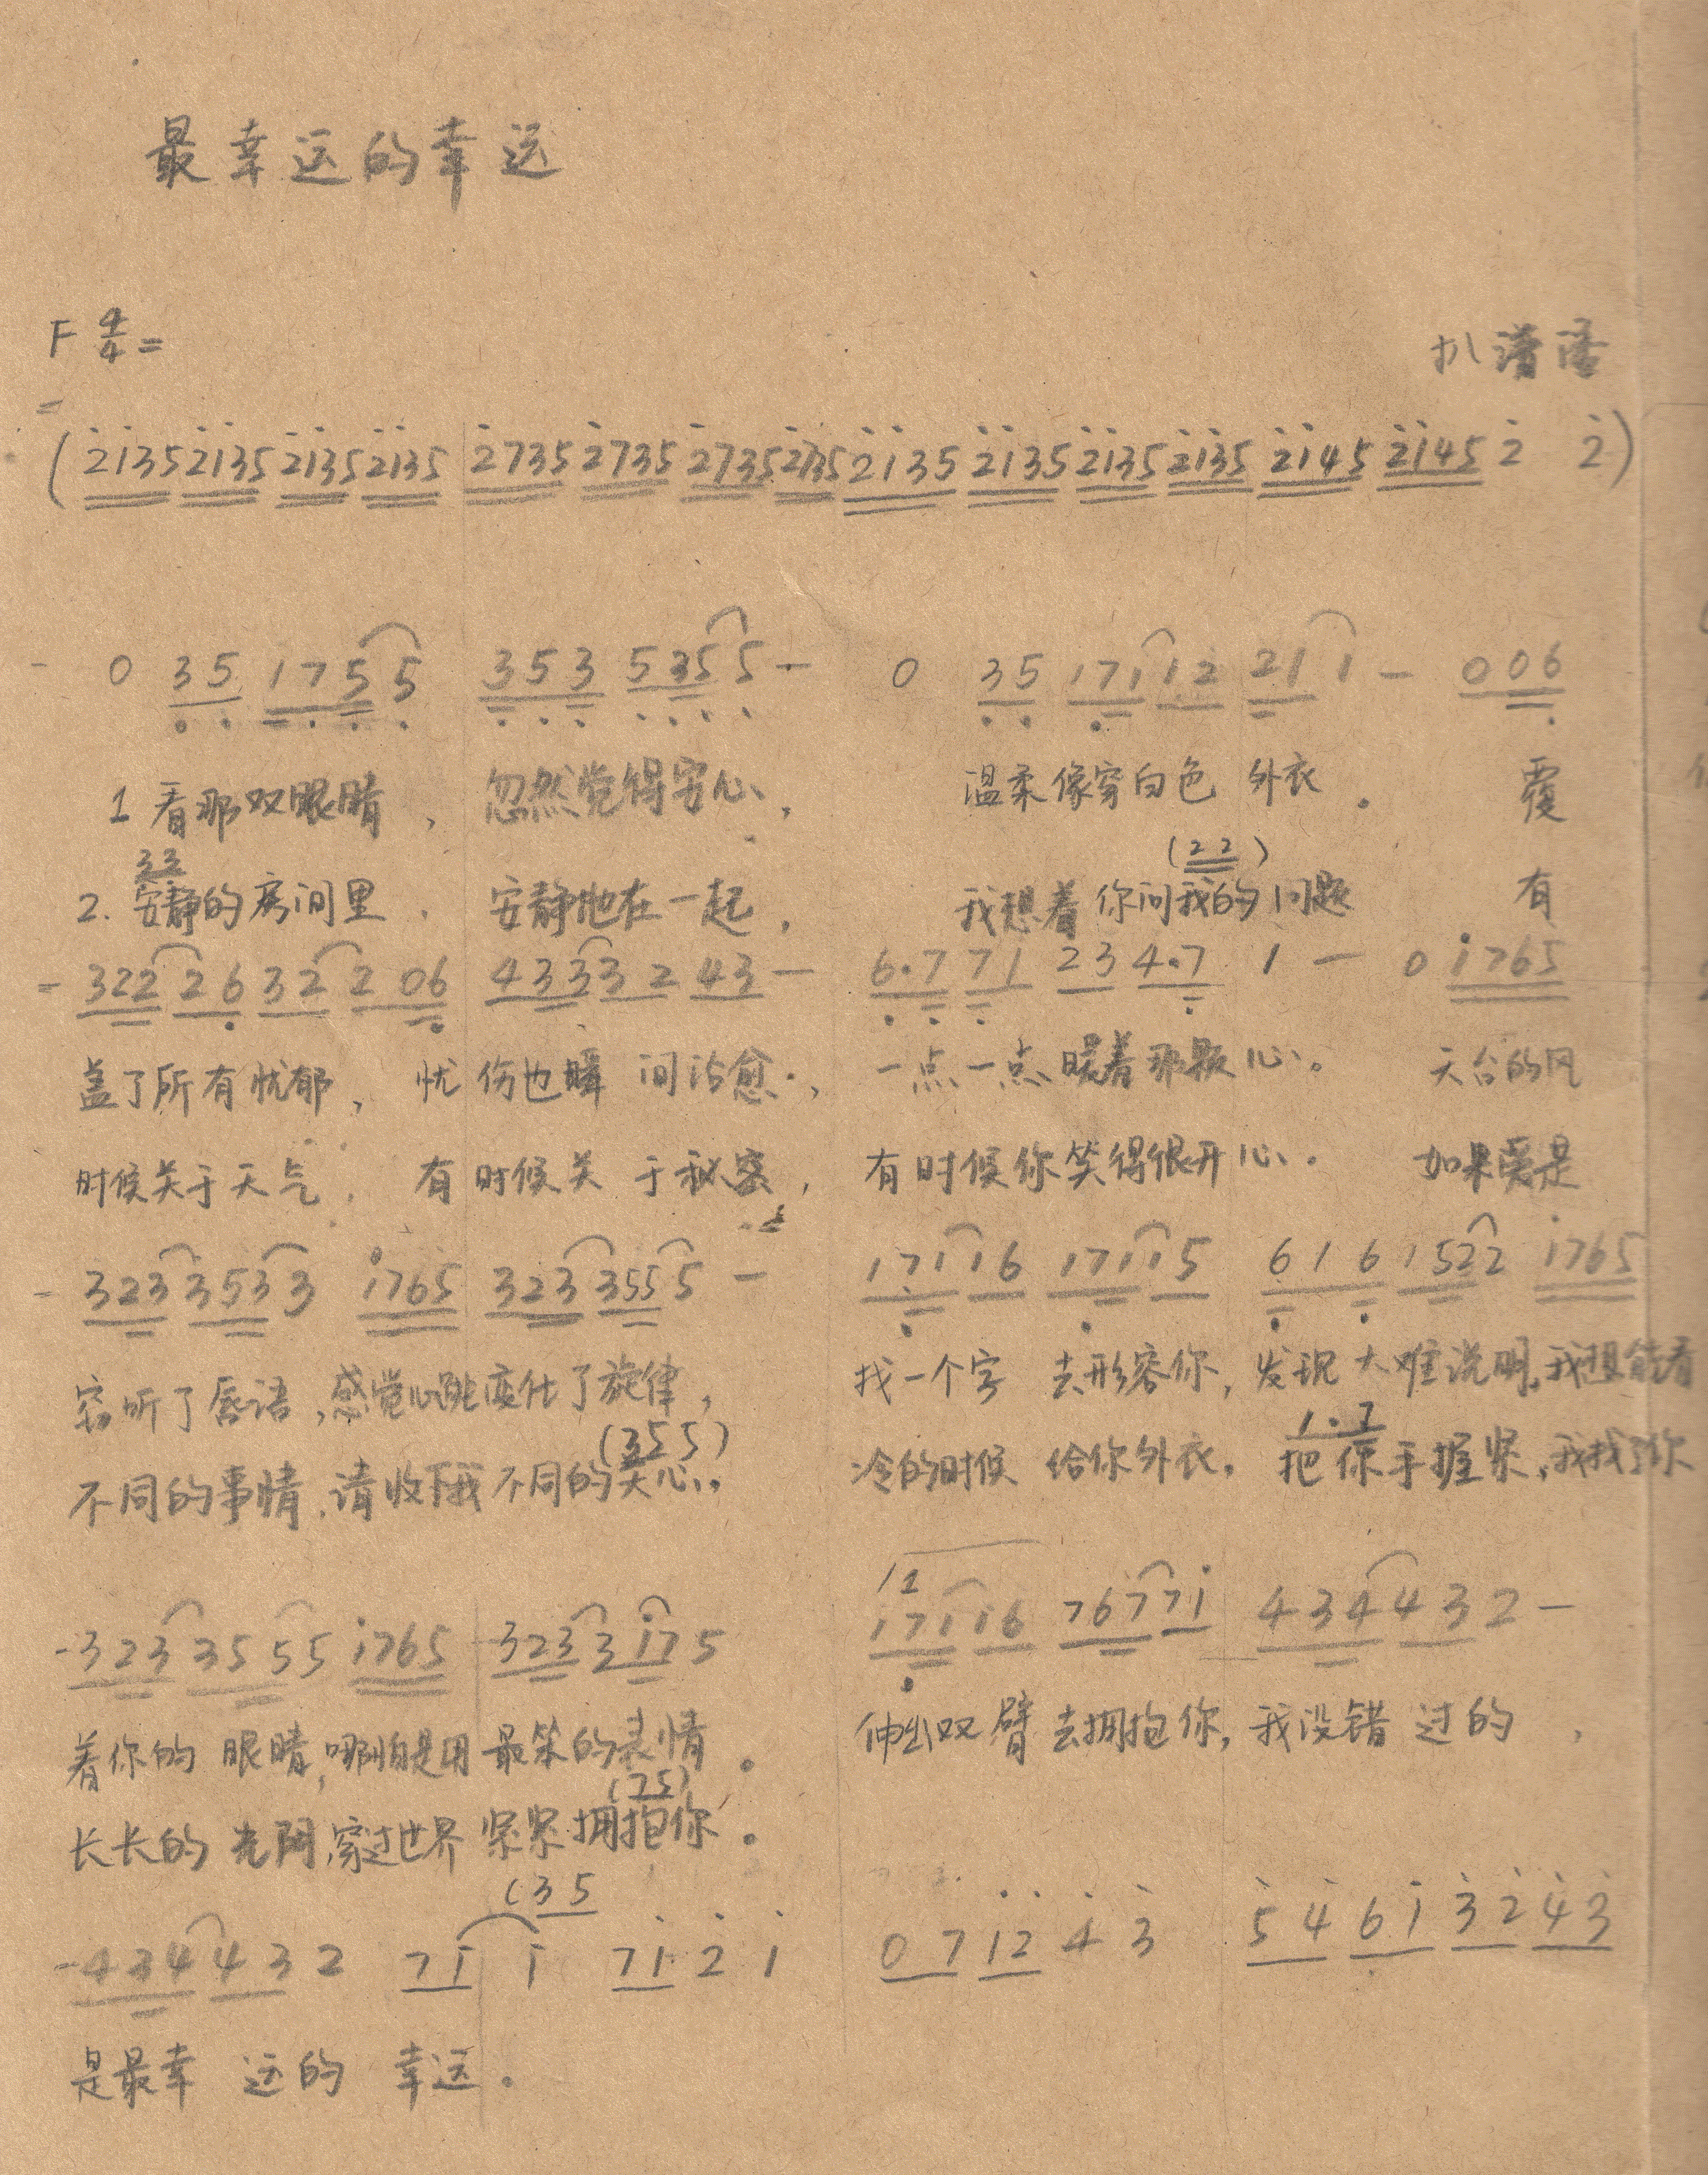 最幸运的幸运
F 4/4 =
扒谱
(2135 2135 2135 2135 2735 2735 2735 2735 2135 2135 2135 2135 2145 2145 2 2)
0 35 175 5 353 535 5 - 0 35 171 12 21 1 - 006
1 看那双眼睛, 忽然觉得安心, 温柔像穿白色 外衣. 覆
33 (22)
2. 安静的房间里. 安静地在一起, 我想着你问我的问题 有
322 26 32 2 06 433 32 43 - 6.7 71 23 4.7 1 - 0 1765
盖了所有忧郁, 忧伤也瞬间治愈, 一点一点暖着那颗心。 天台的风
时候关于天气. 有时候关于秘密, 有时候你笑得很开心. 如果爱是
323 353 3 1765 323 355 5 - 171 16 171 15 616 152 2 1765
窃听了唇语, 感觉心跳变化了旋律, 找一个字 去形容你, 发现太难说明, 我想能看
(355) 1.7
不同的事情, 请收下我不同的关心. 冷的时候 给你外衣. 把你手握紧, 我找了你
12
323 355 5 1765 323 3 17 5 171 16 767 71 434 43 2 -
着你的 眼睛, 哪怕是用 最笨的表情. 伸出双臂 去拥抱你, 我没错过的,
(75)
长长的 光阴, 穿过世界 紧紧拥抱你.
(35
434 43 2 71 1 71 2 1 0 7 12 4 3 54 61 32 43
是最幸 运的 幸运.